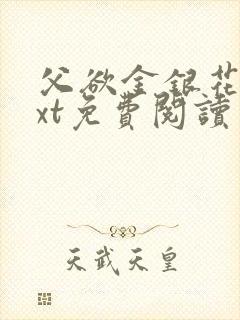 父欲金銀花
xt免費閱讀
天武天皇